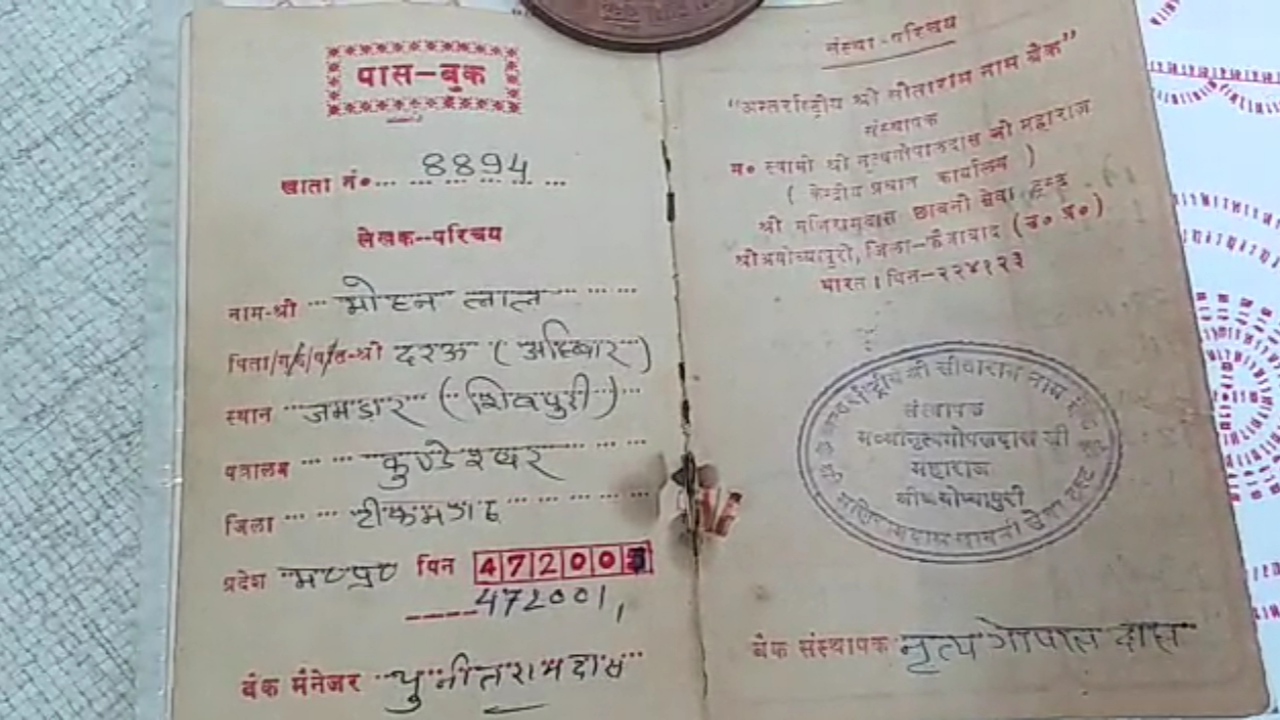 पास-बुक
खाता नं०... 8894
लेखक--परिचय
नाम-श्री मोहन लाल
पिता/गु/प/ति-श्री दरऊ (अहिरवार)
स्थान जमडार (शिवपुरी)
पत्रालय कुण्डेश्वर
जिला टीकमगढ
प्रदेश म०प्र० पिन 47200
472001,
बैंक मैनेजर पुनीतरामदास
संस्था-परिचय
"अन्तर्राष्ट्रीय श्री सीताराम नाम बैंक"
संस्थापक
म० स्वामी श्री नृत्यगोपालदास जी महाराज
( केन्द्रीय प्रधान कार्यालय )
श्री मणिरामदास छावनी सेवा ट्रस्ट
श्रीअयोध्यापुरी, जिला-फैजाबाद (उ० प्र०)
भारत । पिन-२२४१२३
अन्तर्राष्ट्रीय श्री सीताराम नाम बैंक
संस्थापक
म०श्रीनृत्यगोपालदास जी
महाराज
श्रीअयोध्यापुरी
मणिरामदास छावनी सेवा ट्रस्ट
बैंक संस्थापक नृत्य गोपाल दास